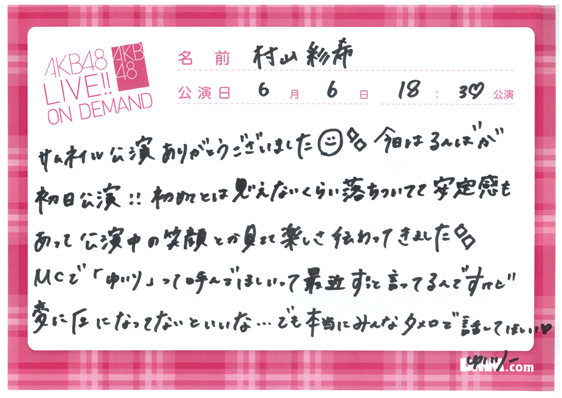 AKB48
LIVE!!
ON DEMAND
AKB
48
名前 村山彩希
公演日 6月 6日 18:30 公演
サムネイル公演ありがとうございました 今日はるんばが
初日公演!! 初めてとは思えないくらい落ちついてて安定感も
あって公演中の笑顔とか見てて楽しさ伝わってきました
MCで「ゆいり」って呼んでほしいって最近ずっと言ってるんですけど
変に圧になってないといいな…でも本当にみんなタメ口で話してほしい♥
ゆいりー
.com